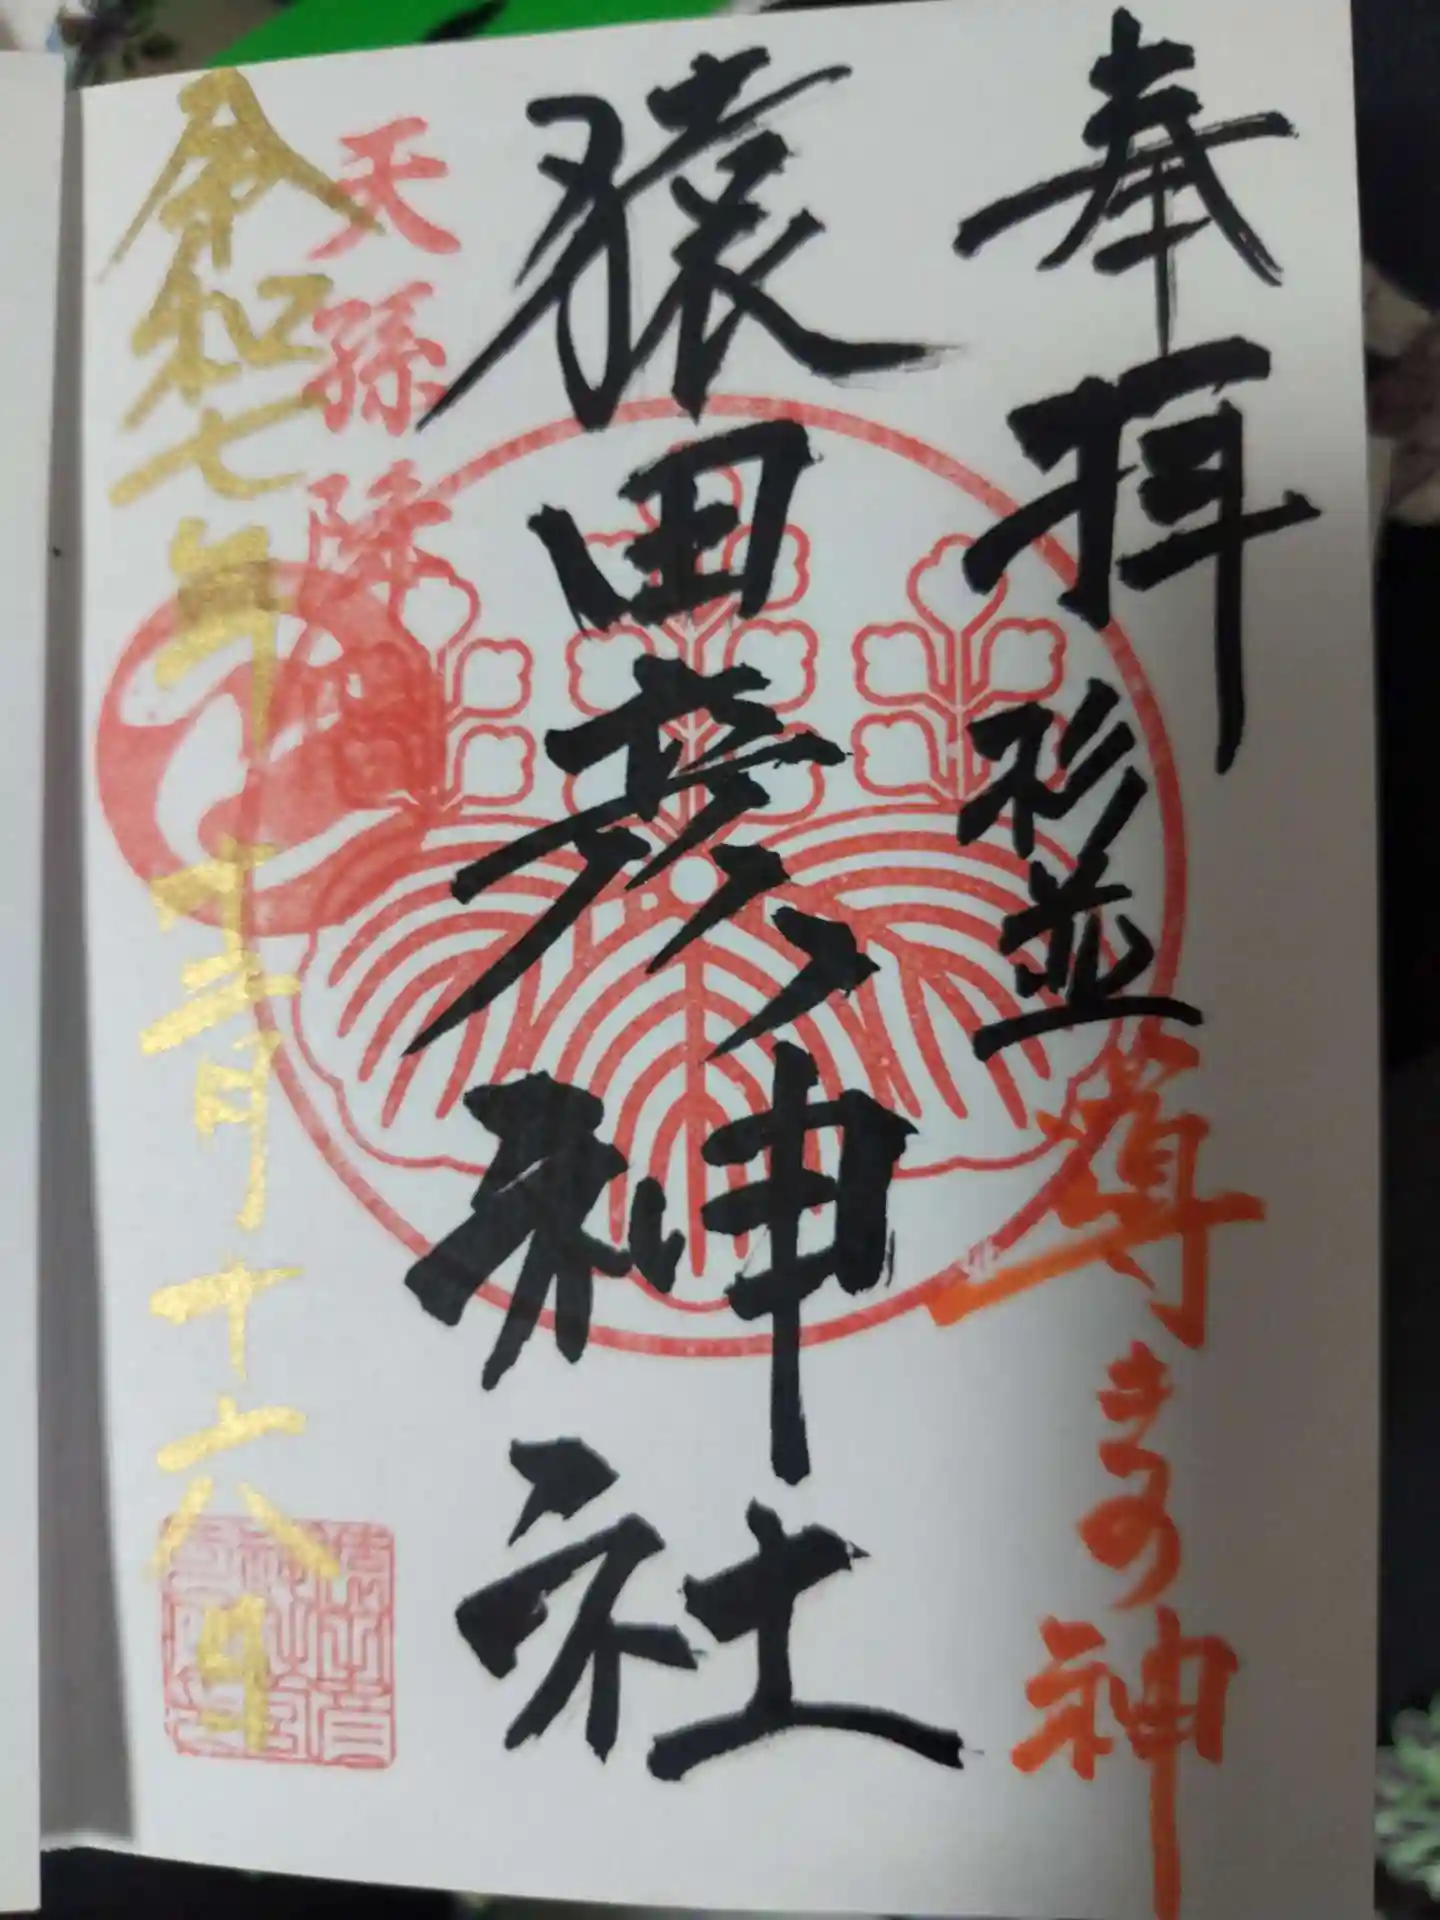 奉拝 杉並
尊きの神
猿田彦神社
天孫降
令和七年十二月十六日